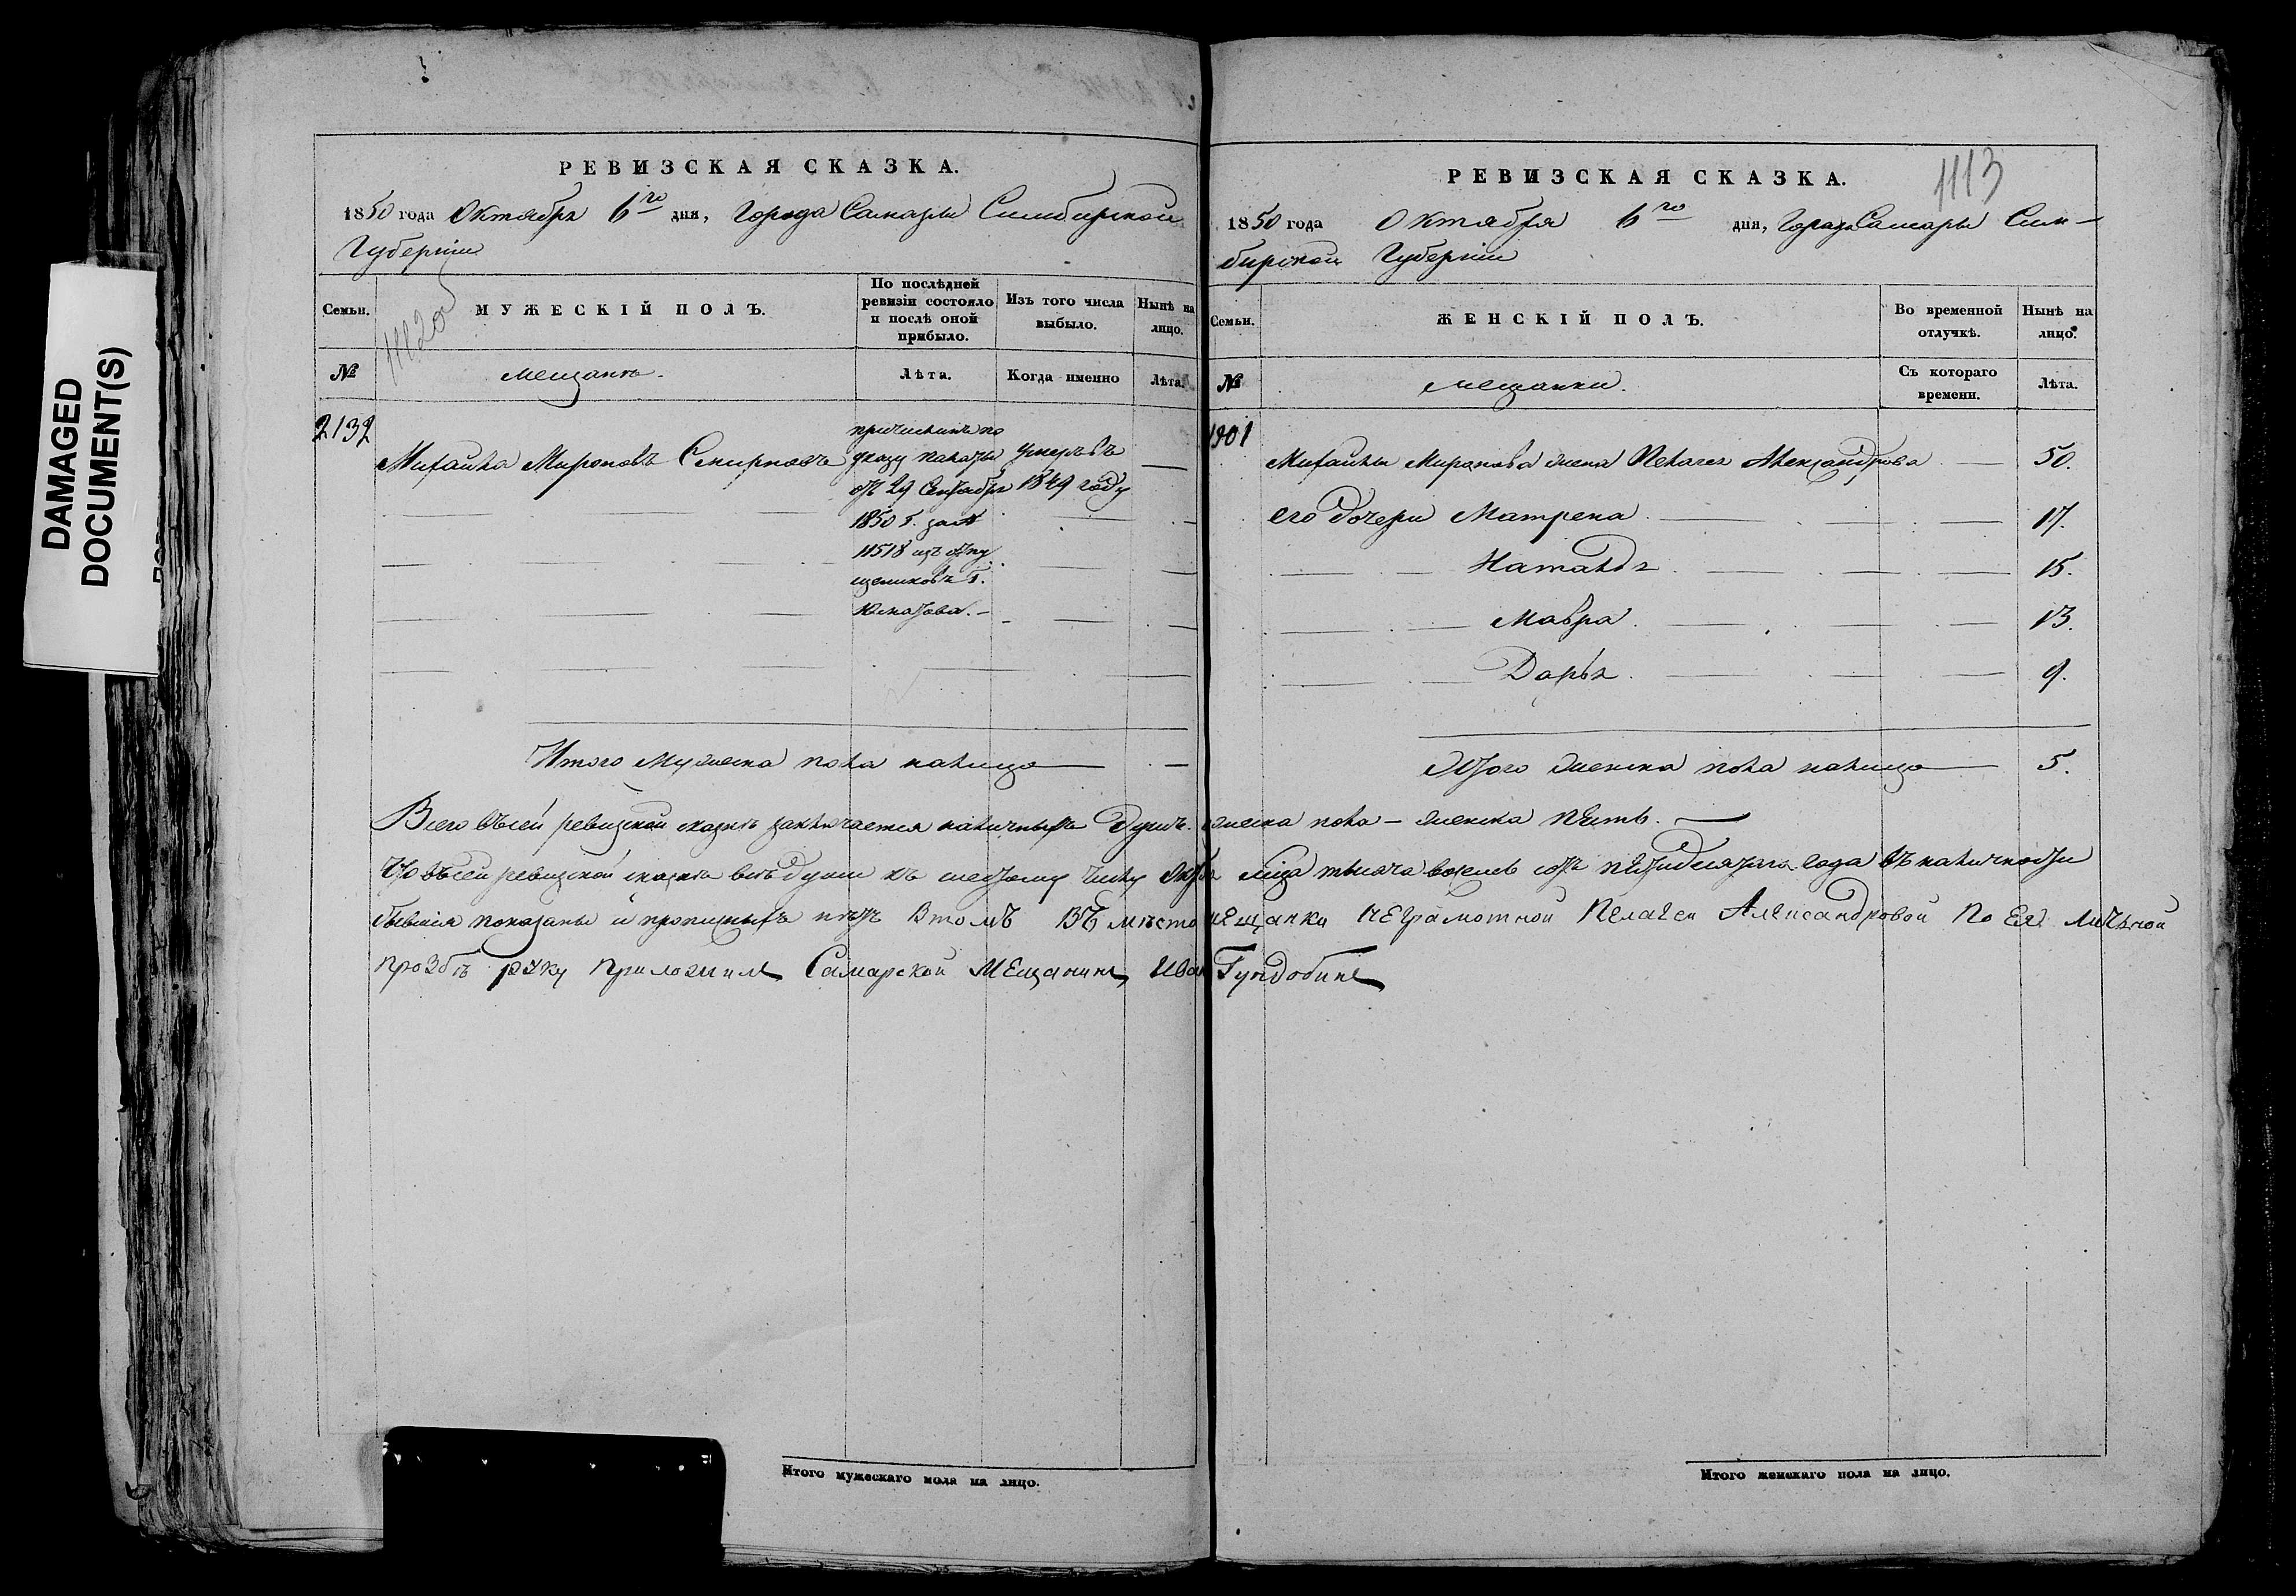 DAMAGED
DOCUMENT(S)
РЕВИЗСКАЯ СКАЗКА.
1850 года Октября 6го дня, Города Самары Симбирской
Губернии
Семьи. МУЖЕСКІЙ ПОЛЪ. По послѣдней ревизіи состояло и послѣ оной прибыло. Изъ того числа выбыло. Нынѣ на лицо.
№ мещанъ. Лѣта. Когда именно Лѣта.
2132
Михайла Мироновъ Смирновъ
причисленъ по
указу палаты
отъ 29 Сентября
1850 г. за №
11518 изъ отпу
щениковъ г.
умеръ въ
1849 году
Итого мужеска пола налицо —
РЕВИЗСКАЯ СКАЗКА.
1113
1850 года Октября 6го дня, Города Самары Сим-
бирской Губернии
Семьи. ЖЕНСКІЙ ПОЛЪ. Во временной отлучкѣ. Нынѣ на лицо.
№ мещанки. Съ котораго времени. Лѣта.
1901
Михайлы Миронова жена Пелагея Александрова — 50.
его дочери Матрена — 17.
Наталья — 15.
Мавра — 13.
Дарья — 9.
Итого женска пола налицо — 5.
Всего въ сей ревизской сказкѣ заключается наличныхъ душъ. мужеска пола – женска пять. —
Что в сей ревизской сказкѣ всѣ души къ шестому числу Октября месяца тысяча восемь сотъ пятидесятаго года въ наличности
бывшія показаны и прописныхъ нѣтъ В томЪ ВЪ мѣсто мещанки неграмотной Пелагеи Александровой По Ея личьной
прозбѣ руку приложилъ Самарской Мещанинъ Иван Гундобинъ
Итого мужескаго пола на лицо.
Итого женскаго пола на лицо.